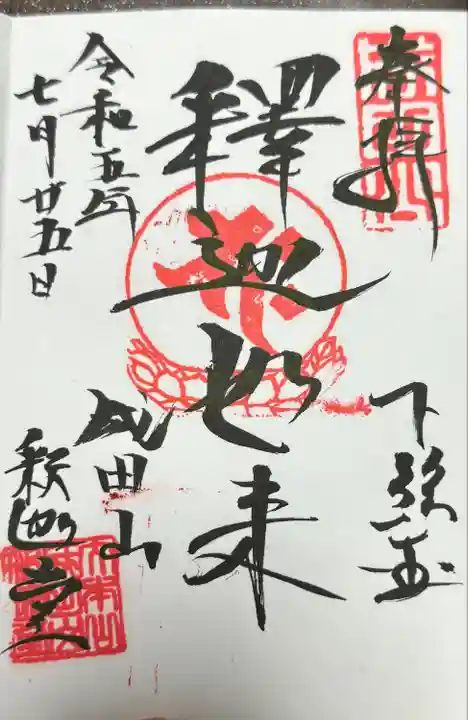 奉拝
下総國
釋迦如来
成田山
釈迦堂
令和五年
七月廿五日